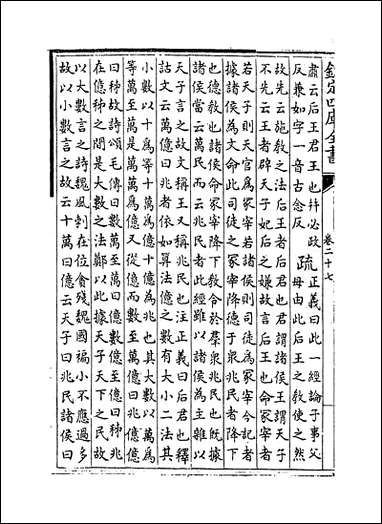 欽定四庫全書
卷二十七
肅云后王君王也幷必政
反兼如字一音古念反
疏
正義曰此一經論子事父
母由此后王之敎使之然
故先云施敎之法后王者后君也君謂諸侯王謂天子
不先云王者辟天子妃后之嫌故言后王也命冢宰者
若天子則天官爲冢宰若諸侯則司徒爲冢宰今記者
據諸侯爲文命此司徒之冢宰降德于衆兆民者降下
也德敎也諸侯命冢宰降下敎令於羣衆兆民也既據
諸侯當云萬民而云兆民者此經雖以諸侯爲主雜以
天子言之故文稱王又稱兆民也注正義曰后君也釋
詁文云萬億曰兆者依如算法億之數有大小二法其
小數以十爲等十萬爲億十億爲兆也其大數以萬爲
等萬至萬是萬萬爲億又從億而數至萬億曰兆億億
曰秭故詩頌毛傳曰數萬至萬曰億數億至億曰秭兆
在億秭之間是大數之法鄭以此據天子天下之民故
以大數言之詩魏風刺在位貪殘魏國褊小不應過多
故以小數言之故云十萬曰億云天子曰兆民諸侯曰